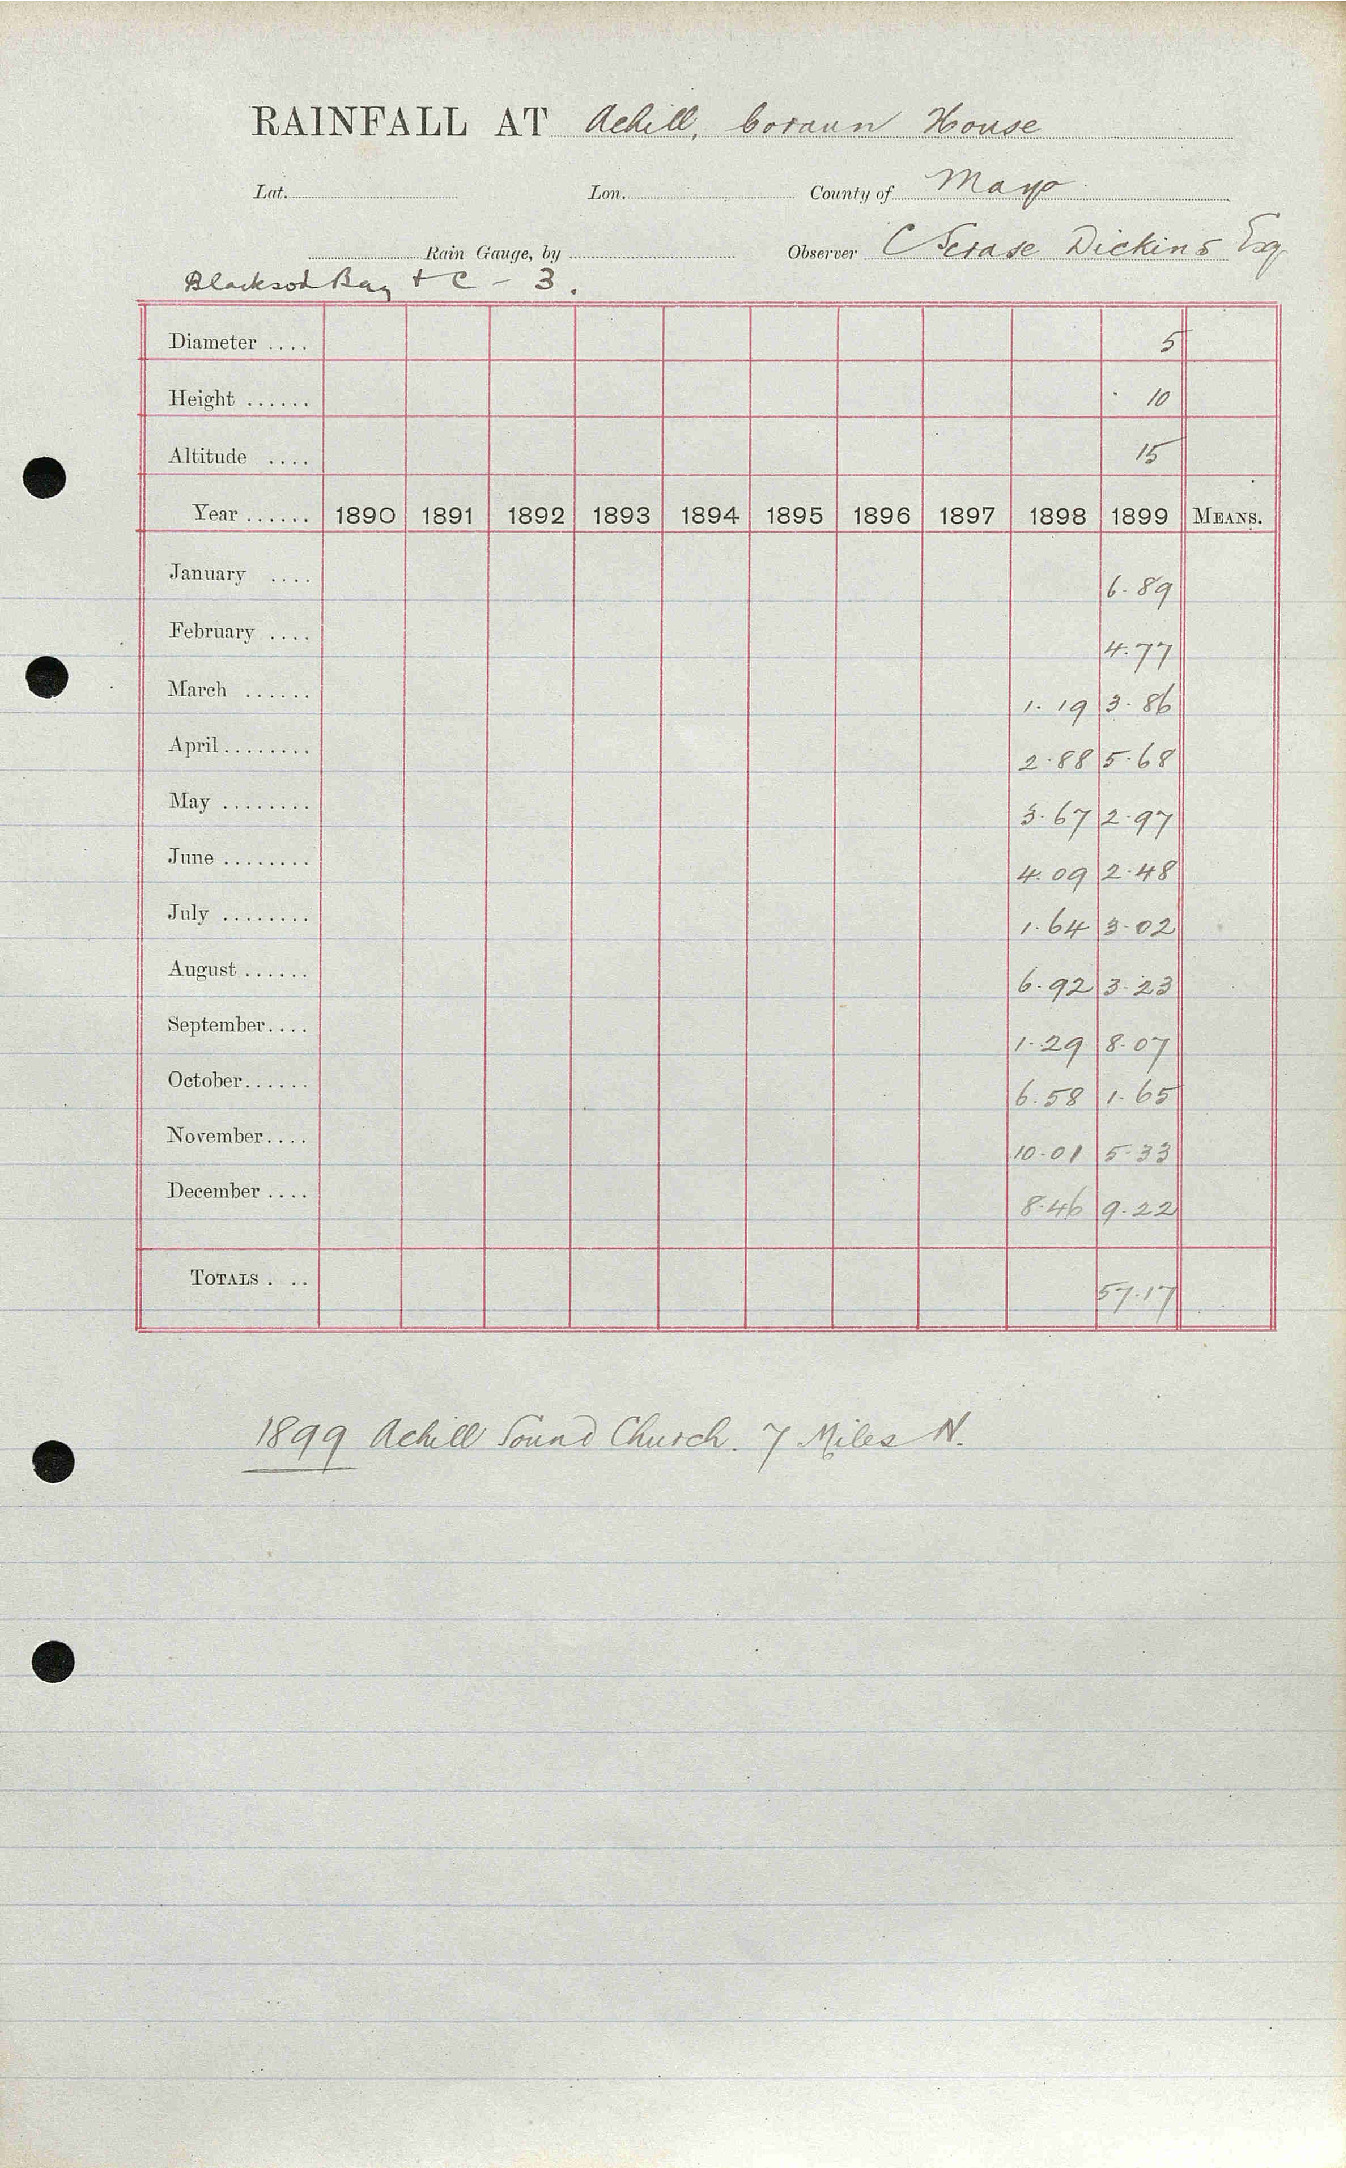 RAINFALL AT Achill, Coraun House
Lat. Lon. County of Mayo
Rain Gauge, by Observer C Scrase Dickins Esq
Blacksod Bay + C - 3.
Diameter .... 5
Height ...... 10
Altitude .... 15
Year ...... 1890 1891 1892 1893 1894 1895 1896 1897 1898 1899 MEANS.
January .... 6.89
February .... 4.77
March ...... 1.19 3.86
April ........ 2.88 5.68
May ........ 3.67 2.97
June ........ 4.09 2.48
July ........ 1.64 3.02
August ...... 6.92 3.23
September.... 1.29 8.07
October...... 6.58 1.65
November.... 10.01 5.33
December .... 8.46 9.22
TOTALS . .. 57.17
1899 Achill Sound Church. 7 Miles N.